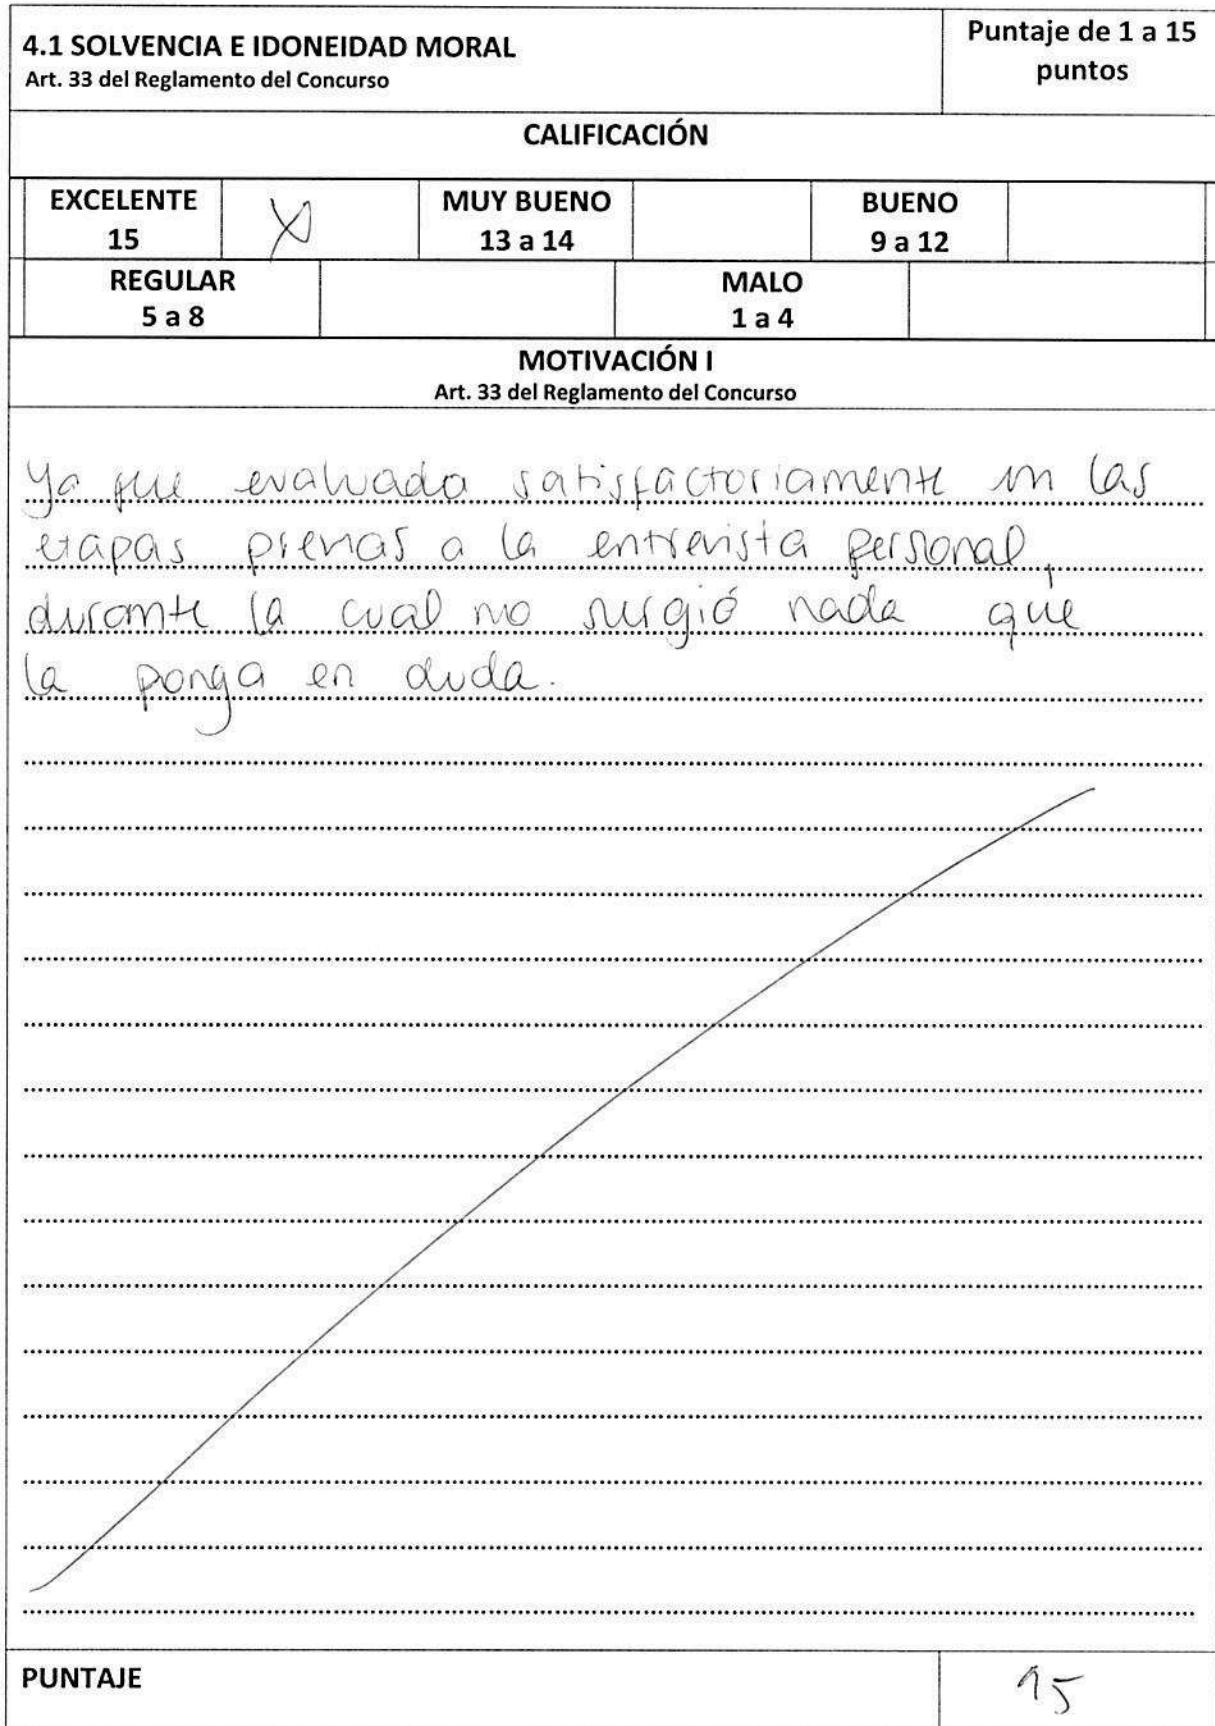 4.1 SOLVENCIA E IDONEIDAD MORAL
Art. 33 del Reglamento del Concurso
Puntaje de 1 a 15
puntos
CALIFICACIÓN
EXCELENTE
15
X
MUY BUENO
13 a 14
BUENO
9 a 12
REGULAR
5 a 8
MALO
1 a 4
MOTIVACIÓN I
Art. 33 del Reglamento del Concurso
Ya fue evaluada satisfactoriamente en las
etapas previas a la entrevista personal,
durante la cual no surgió nada que
la ponga en duda.
PUNTAJE
15